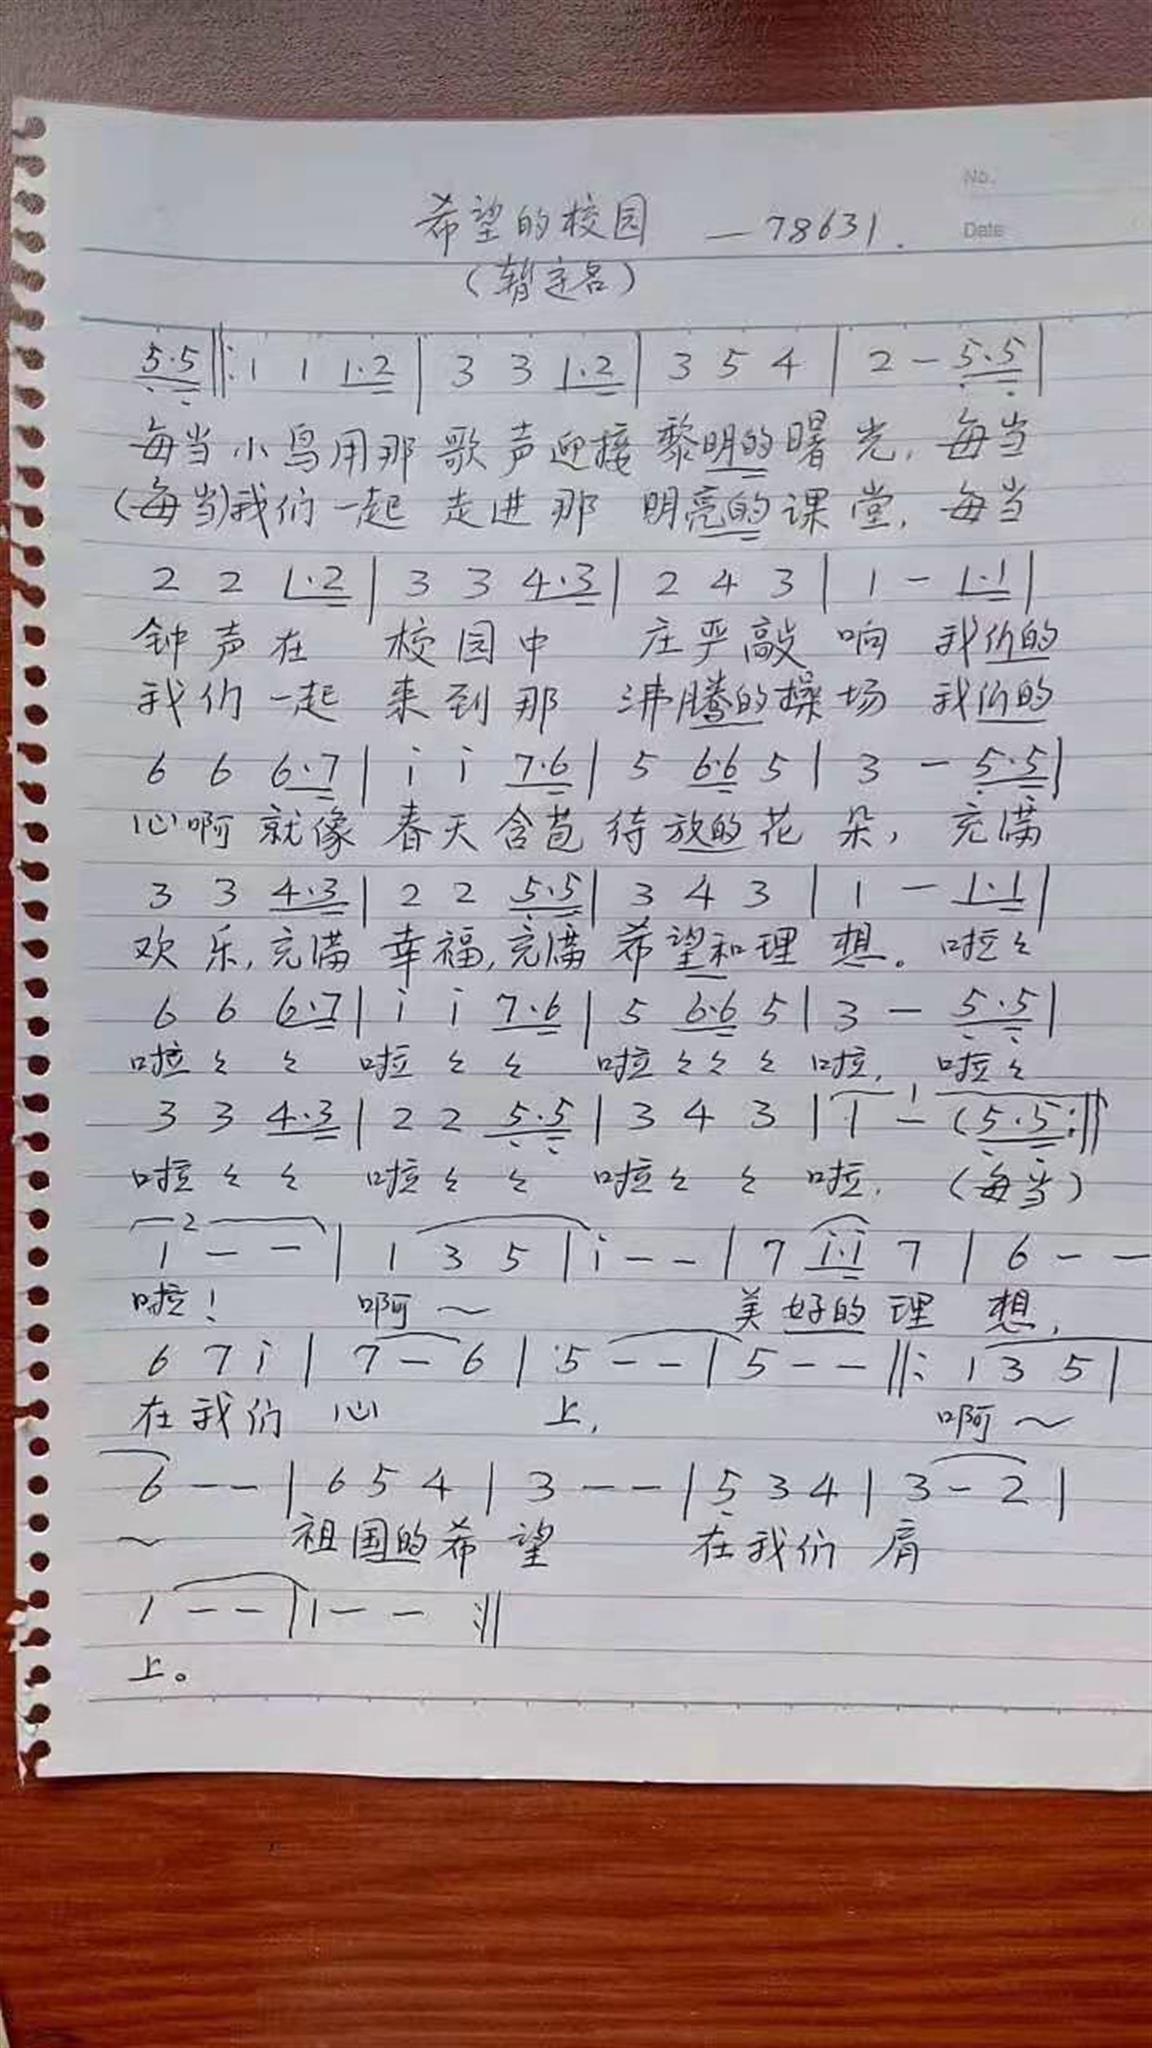 No.
希望的校园 —78631.
Date
(暂定名)
5·5‖:1 1 1·2|3 3 1·2|3 5 4|2 — 5·5|
每当小鸟用那歌声迎接黎明的曙光,每当
(每当)我们一起走进那明亮的课堂,每当
2 2 1·2|3 3 4·3|2 4 3|1 — 1·1|
钟声在校园中庄严敲响我们的
我们一起来到那沸腾的操场我们的
6 6 6·7|i i 7·6|5 6·6 5|3 — 5·5|
心啊就像春天含苞待放的花朵,充满
3 3 4·3|2 2 5·5|3 4 3|1 — 1·1|
欢乐,充满幸福,充满希望和理想。啦々
6 6 6·7|i i 7·6|5 6·6 5|3 — 5·5|
啦々々啦々々啦々々々啦,啦々
3 3 4·3|2 2 5·5|3 4 3|1 — (5·5:‖
啦々々啦々々啦々々啦,(每当)
1 — —|1 3 5|i — —|7 i·i 7|6 — —
啦!啊~美好的理想,
6 7 i|7 — 6|5 — —|5 — —‖:1 3 5|
在我们心上,啊~
6 — —|6 5 4|3 — —|5 3 4|3 — 2|
~祖国的希望在我们肩
1 — —|1 — — :‖
上。